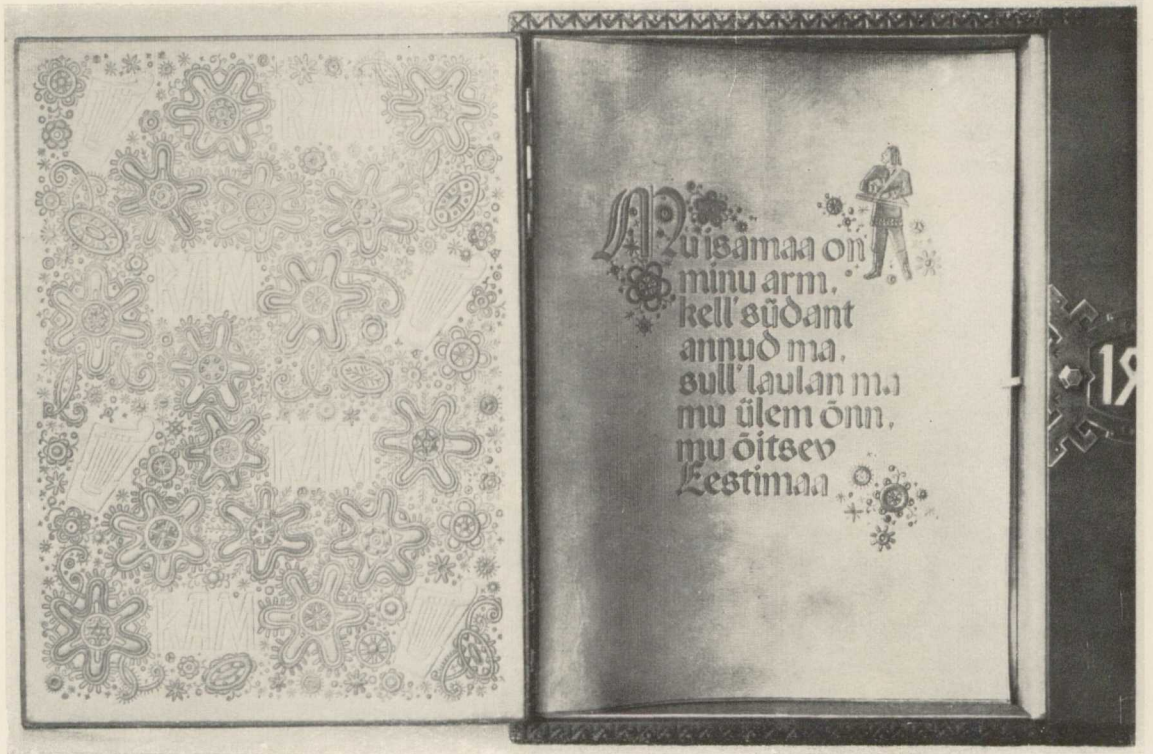 RAM
RAM
RAM
RAM
Mu isamaa on
minu arm,
kell' südant
annud ma,
sull' laulan ma
mu ülem õnn,
mu õitsev
Eestimaa
19